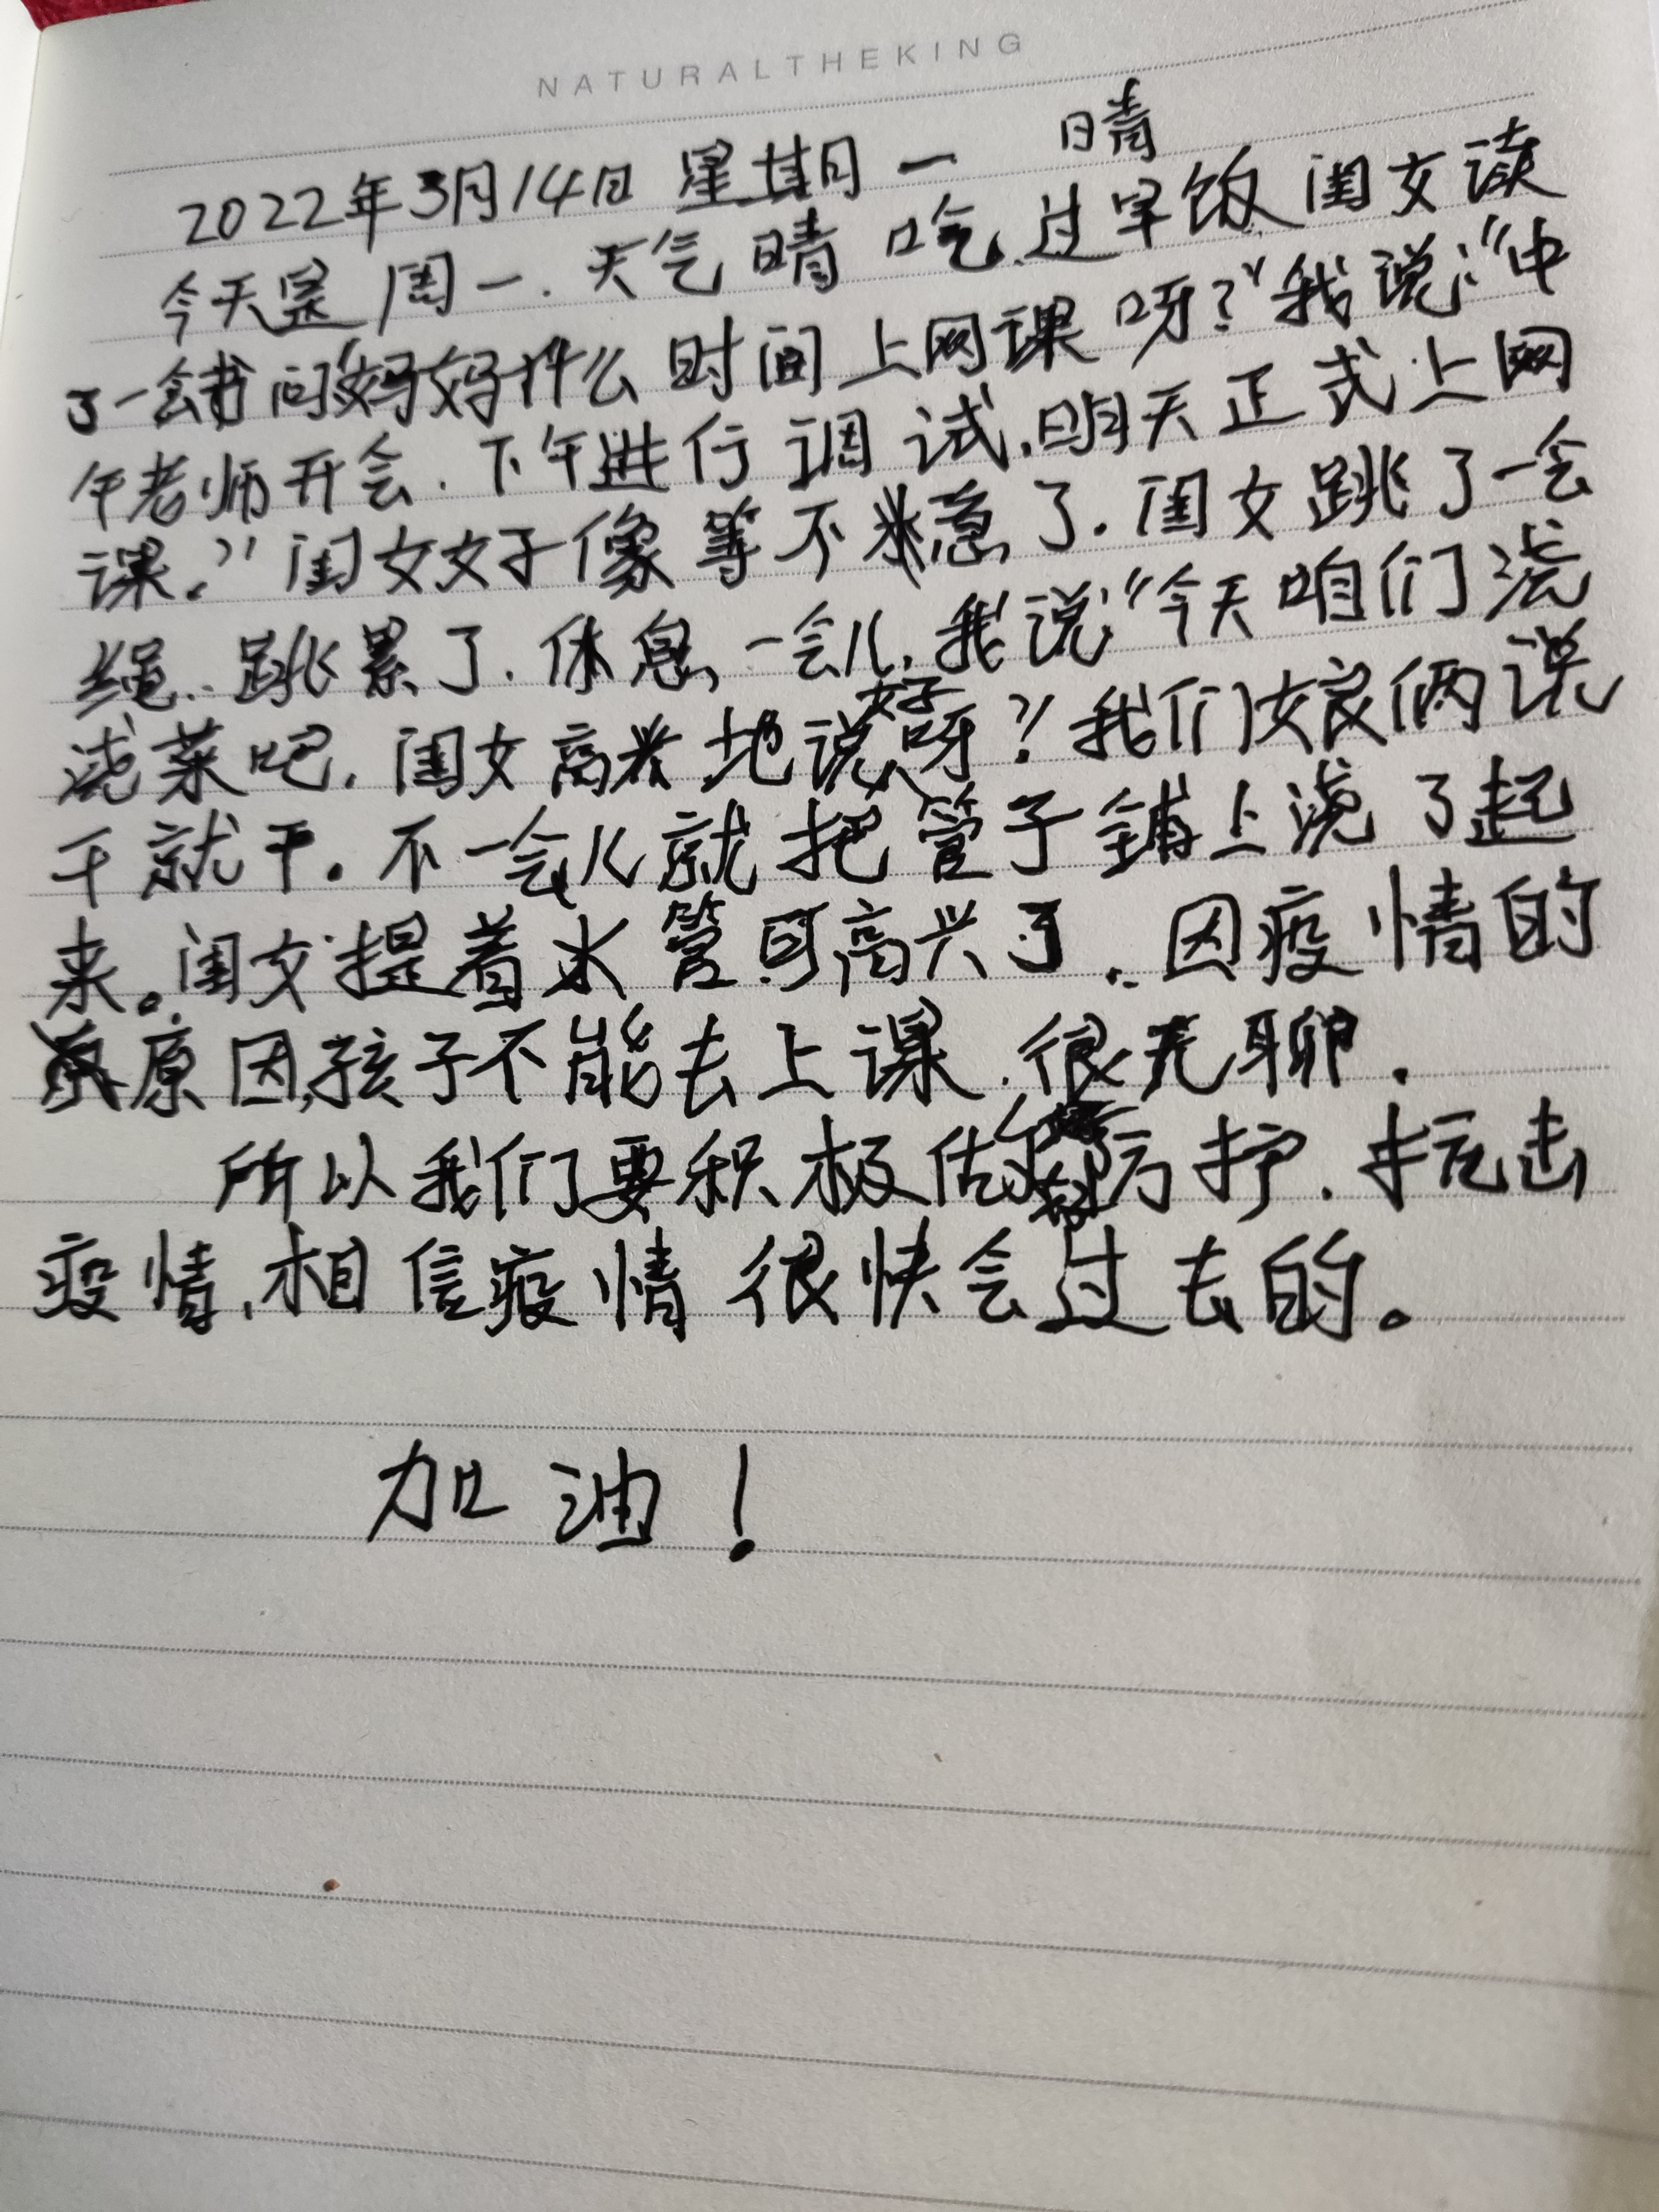 NATURALTHEKING
2022年3月14日 星期一 晴
今天是周一.天气晴 吃过早饭闺女读
了一会书问"妈妈什么时间上网课呀?"我说:"中
午老师开会.下午进行调试,明天正式上网
课。"闺女好像等不急了.闺女跳了一会
绳..跳累了.休息一会儿,我说"今天咱们浇
浇菜吧.闺女高兴地说好呀?我们娘俩说
干就干.不一会儿就把管子铺上浇了起
来。闺女提着水管可高兴了.因疫情的
原因,孩子不能去上课.很无聊.
所以我们要积极做好防护.抗击
疫情,相信疫情很快会过去的。
加油!